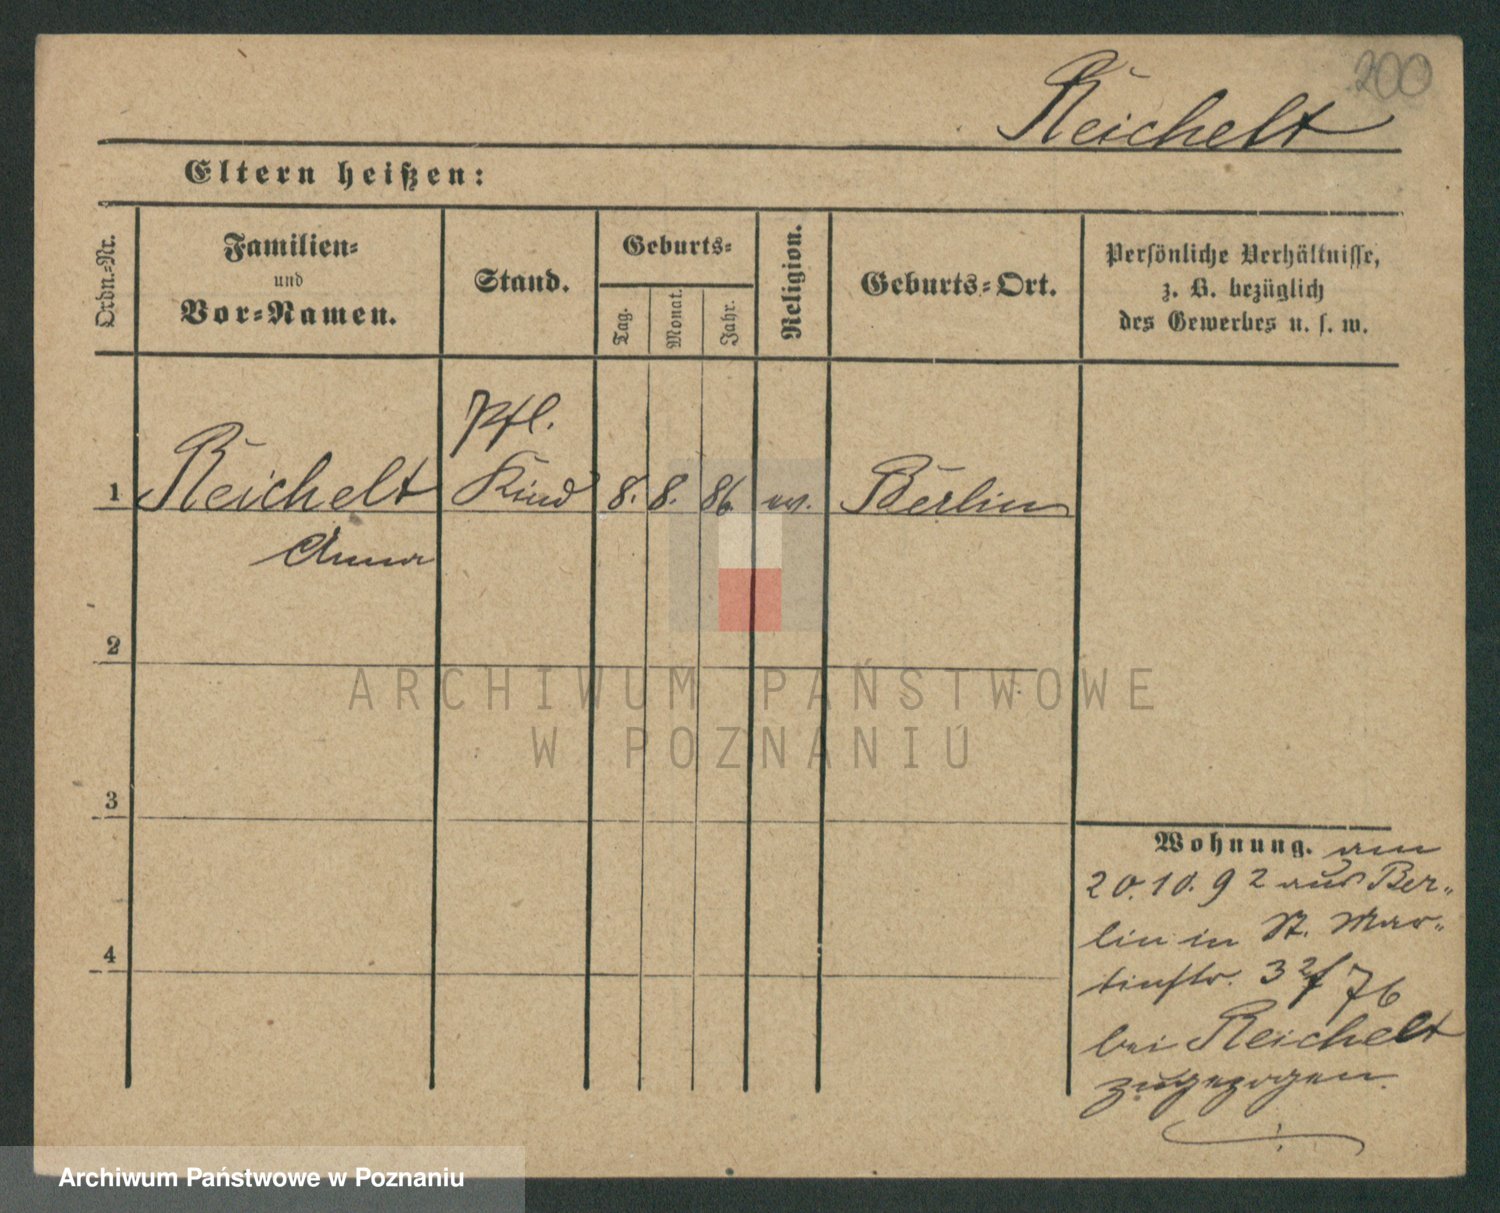 200
Reichelt
Eltern heißen:
Ordn.-Nr.
Familien-
und
Vor-Namen.
Stand.
Geburts-
Tag.
Monat.
Jahr.
Religion.
Geburts-Ort.
Persönliche Verhältnisse,
z. B. bezüglich
des Gewerbes u. s. w.
Pfl.
1 Reichelt Kind 8. 8. 86. ev. Berlin
Anna
2
3
4
Wohnung. am
20.10.92 aus Ber-
lin in St. Mar-
tinstr. 32/76
bei Reichelt
zugezogen.
ARCHIWUM PAŃSTWOWE
W POZNANIU
Archiwum Państwowe w Poznaniu